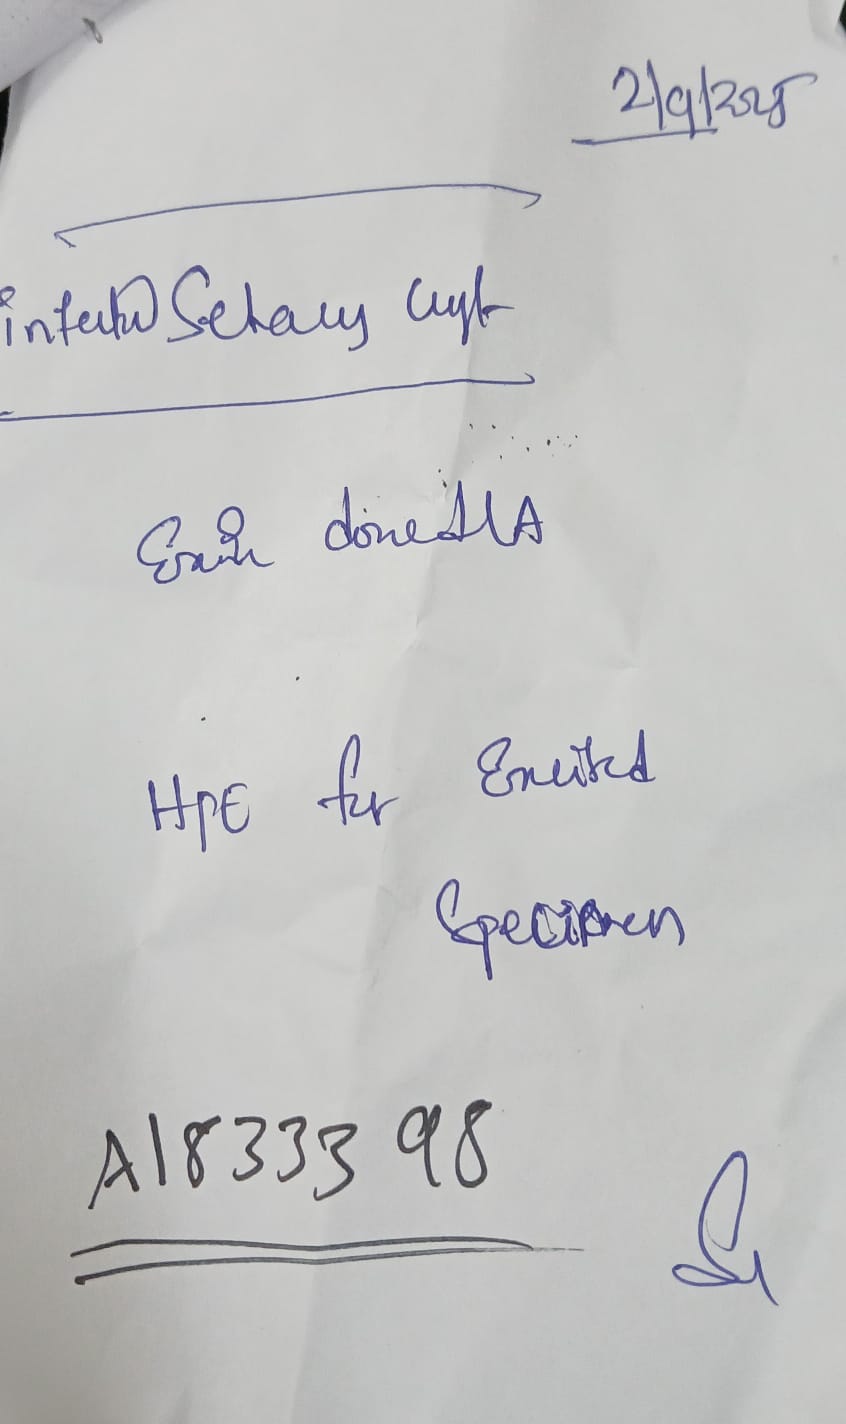 2/9/2025
infected Sebaceous Cyst
Excision done ↓ LA
HPE for Excited
Specimen
A1833398